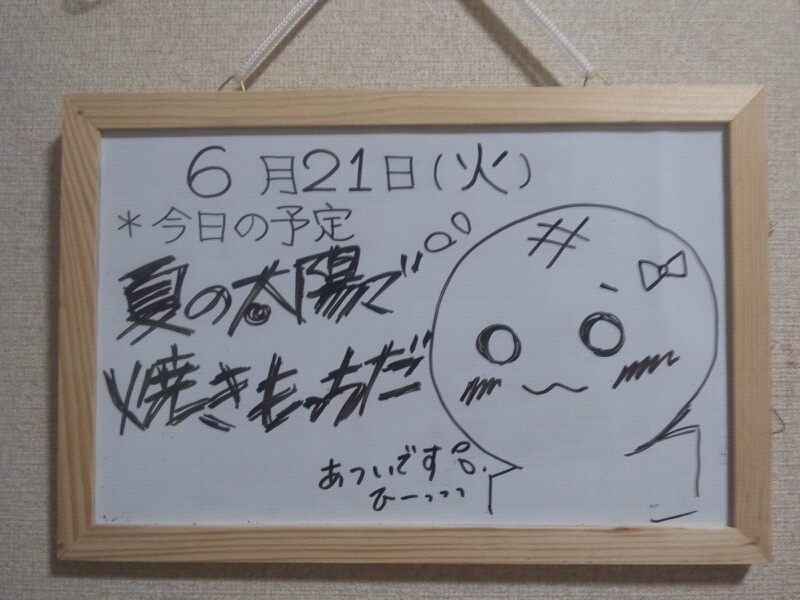 6月21日(火)
*今日の予定
夏の太陽で
焼きもちだ
あついです。
ひーっっっ